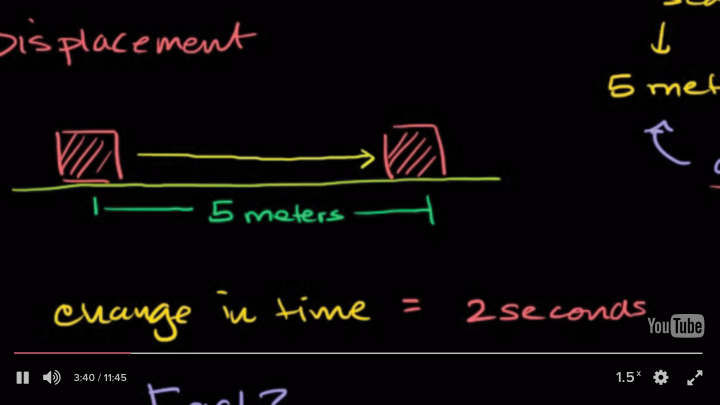 Displacement
5 meters
change in time = 2 seconds
YouTube
3:40 / 11:45
1.5x